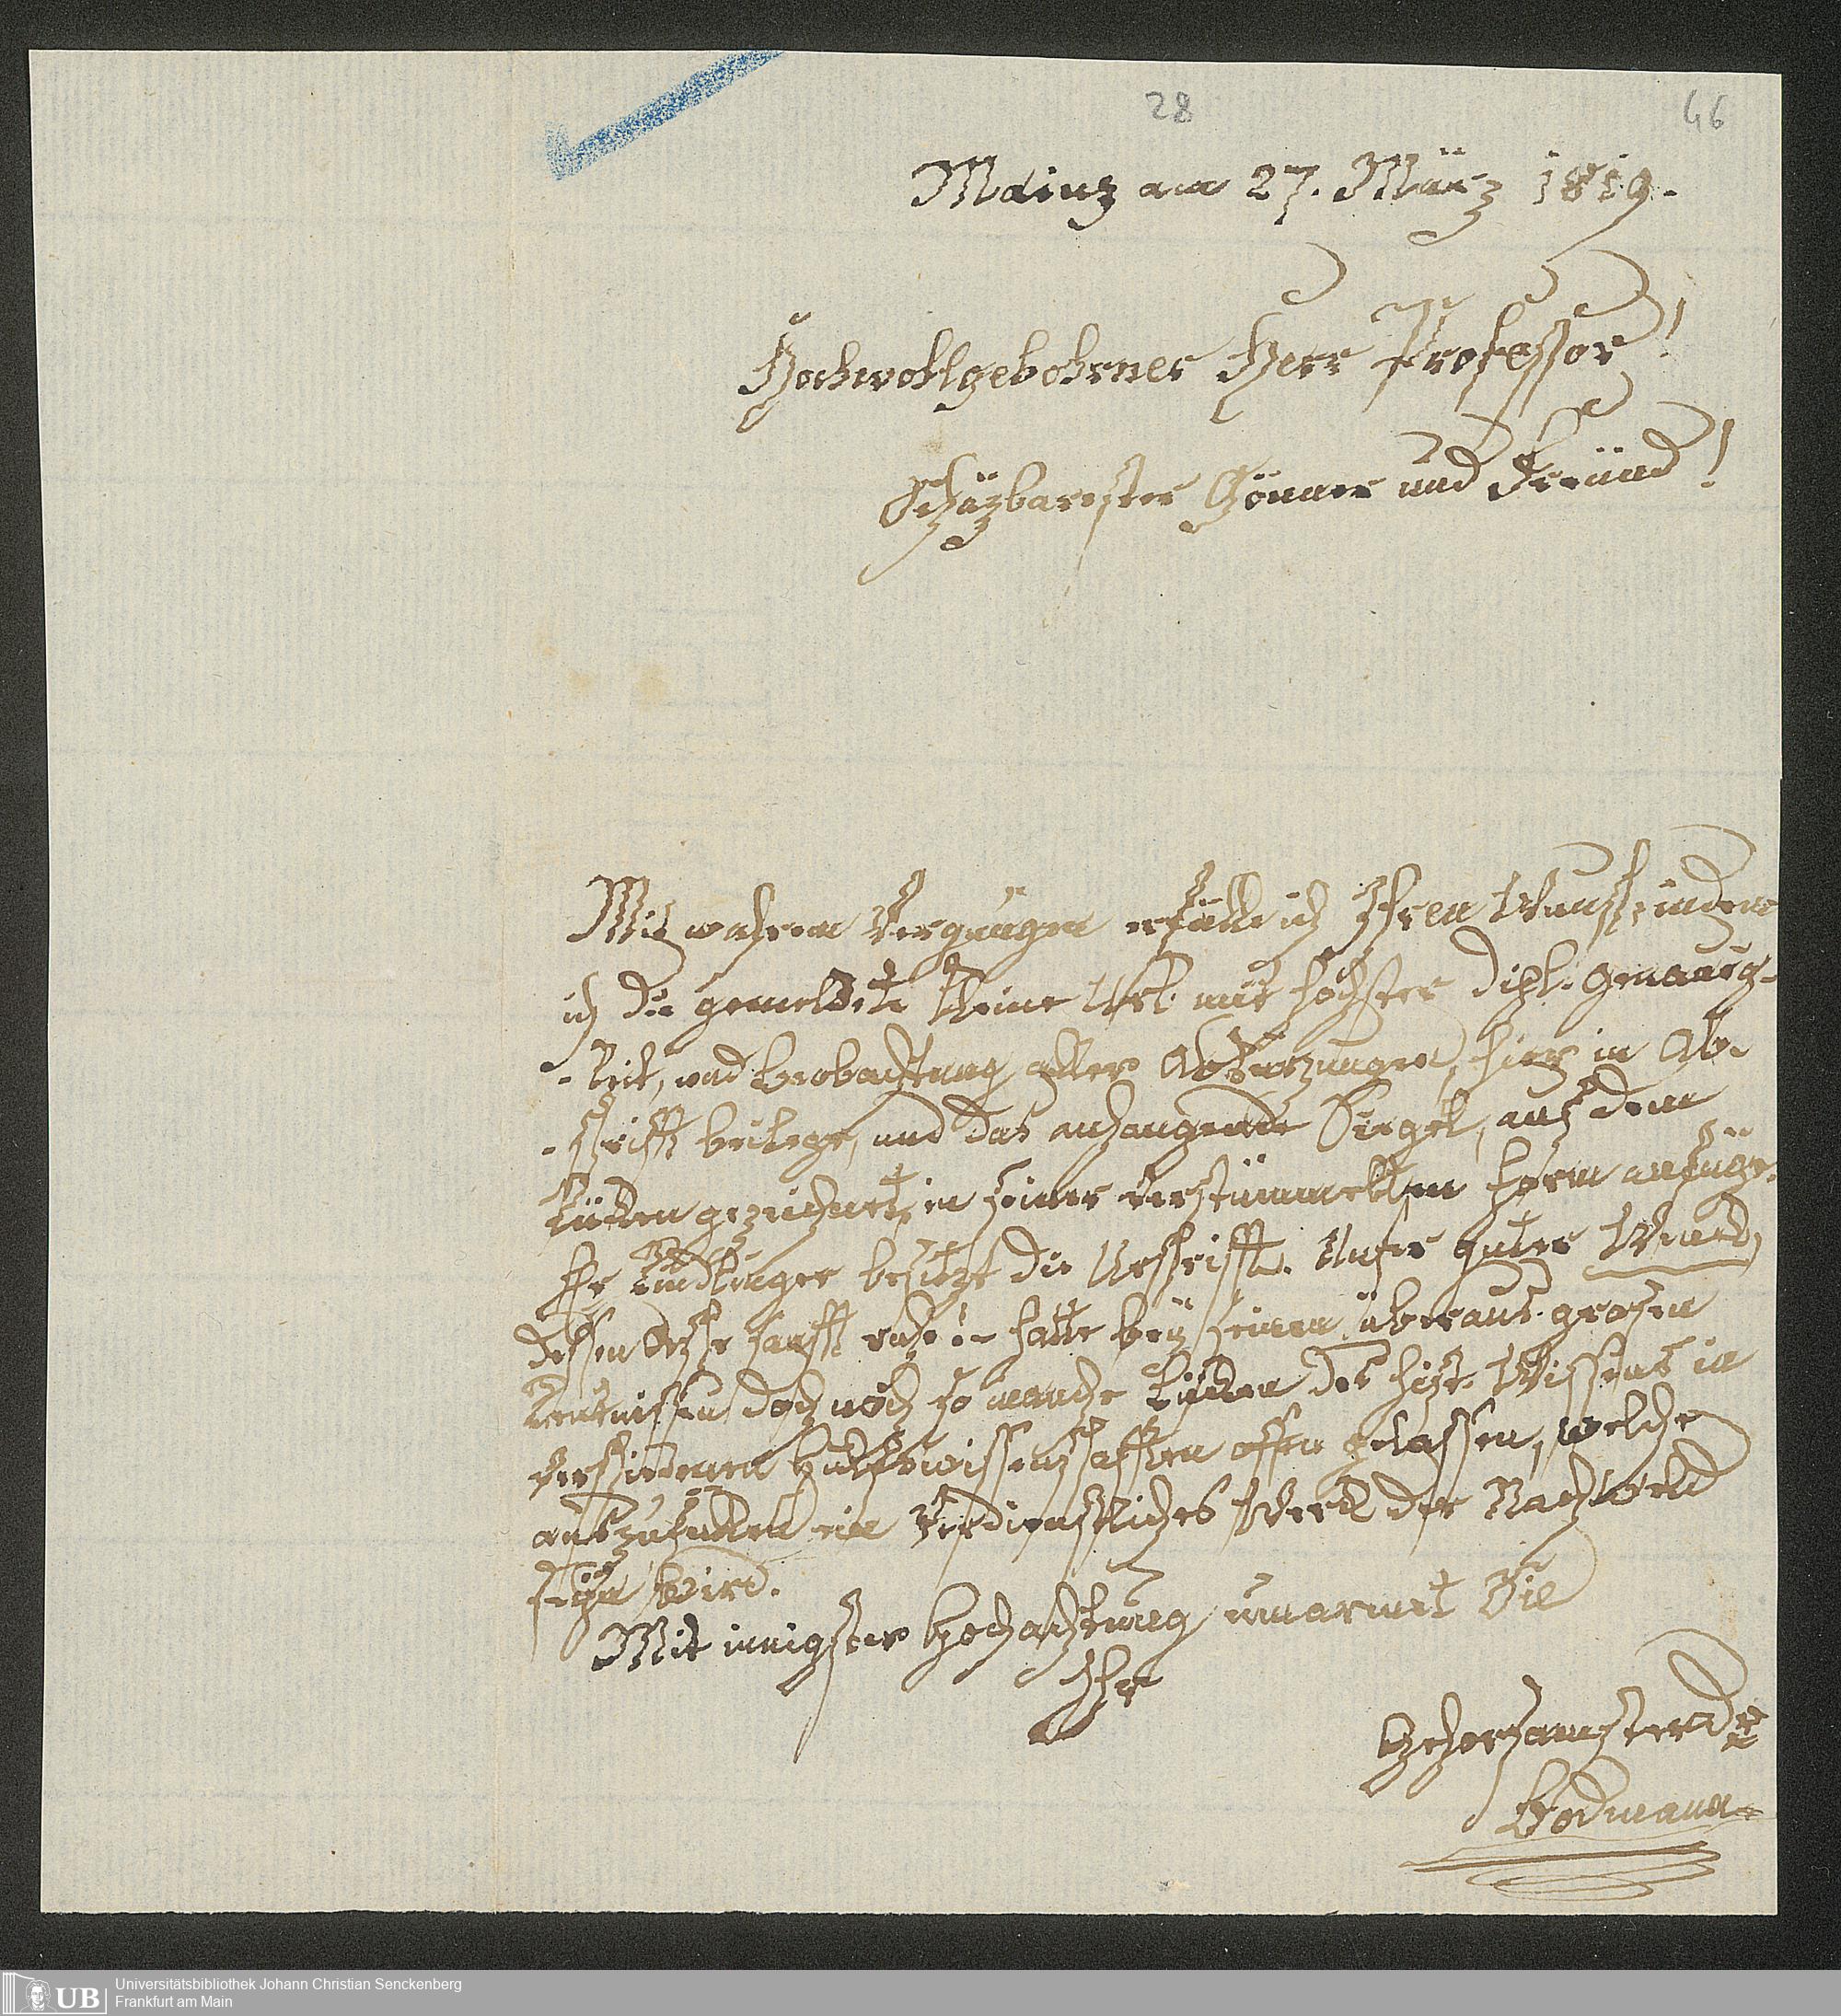 28
46
Mainz am 27. März 1819.
Hochwohlgebohrner Herr Professor!
Schäzbarester Gönner und Freund!
Mit wahrem Vergnügen erfülle ich Ihren Wunsch, indem
ich die gemeldete kleine Urk. mit höchster dipl. Genauig-
-keit, und Beobachtung aller Abkürzungen, hier in Ab-
-schrifft beilege, und das anhangende Siegel, auf dem
Rücken gezeichnet, in seiner verstümmelten Form anfüge.
Hr Kindlinger besitzt die Urschrifft. Unser guter Wenck,
dessen Asche sanfft ruhe! – hatte bey seinen überaus grosen
Kentnissen doch noch so manche Lücken des hist. Wissens in
verschiedenen Hülfswissenschafften offen gelassen, welche
auszufüllen ein Verdienstliches Werk der Nachwelt
seyn wird.
Mit innigster Hochachtung umarmt Sie
Ihr
Gehorsamster
Bodmann
UB
Universitätsbibliothek Johann Christian Senckenberg
Frankfurt am Main